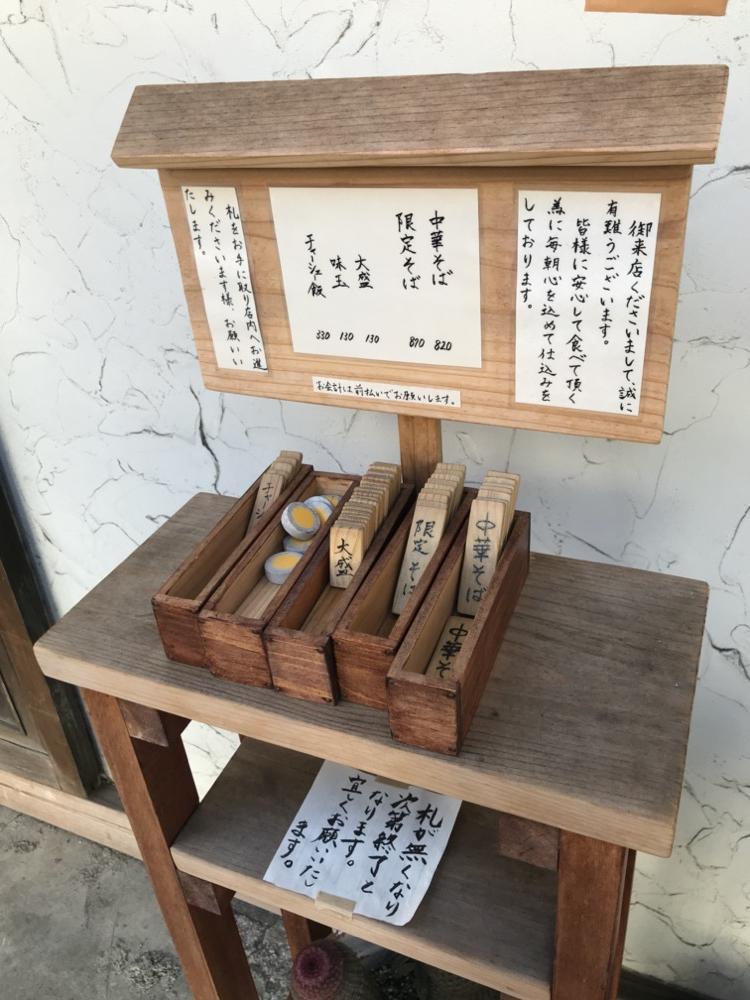 御来店くださいまして、誠に
有難うございます。
皆様に安心して食べて頂く
為に毎朝心を込めて仕込みを
しております。
中華そば 820
限定そば 870
大盛 130
味玉 130
チャーシュー飯 330
札をお手に取り店内へお進
みくださいます様、お願いい
たします。
お会計は前払いでお願いします。
チャーシ
大盛
限定そば
中華そば
中華そ
札が無くなり
次第終了と
なります。
宜しくお願いいたし
ます。